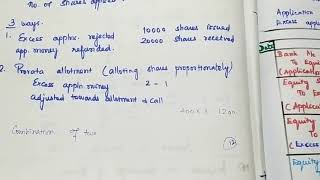 No. of shares applied
3 ways.
1. Excess applns. rejected 10000 shares issued
app. money refunded. 20000 shares received
2. Prorata allotment (alloting shares proportionately)
Excess appln money 2 - 1
adjusted towards allotment & call
Combination of two
12
Application
Excess appl
Date
Bank
To Equi
(Applicatio
Equity S
To E
(App
Equity
To
(Excess
Equity
To